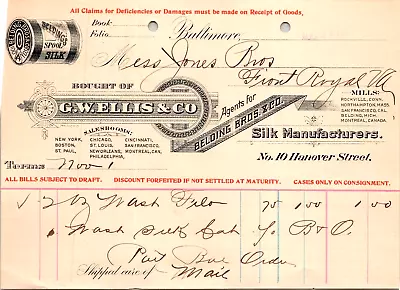 All Claims for Deficiencies or Damages must be made on Receipt of Goods,
Book
Folio
Baltimore,
BELDING'S
SPOOL
SILK
Mess Jones Bros
Front Royal Va
BOUGHT OF
G.W. ELLIS & CO
Agents for
BELDING BROS. & CO.
Silk Manufacturers.
MILLS:
ROCKVILLE, CONN.
NORTHAMPTON, MASS.
SAN FRANCISCO, CAL.
BELDING, MICH.
MONTREAL, CANADA.
SALESROOMS:
NEW YORK, CHICAGO, CINCINNATI,
BOSTON, ST. LOUIS, SAN FRANCISCO,
ST. PAUL, NEW ORLEANS, MONTREAL, CAN.
PHILADELPHIA,
No. 10 Hanover Street.
Terms Nov 1
ALL BILLS SUBJECT TO DRAFT. DISCOUNT FORFEITED IF NOT SETTLED AT MATURITY. CASES ONLY ON CONSIGNMENT.
Wash Filo 75 1 00 1 00
1 Wash Silk B&O
Order
Shipped care of Mail